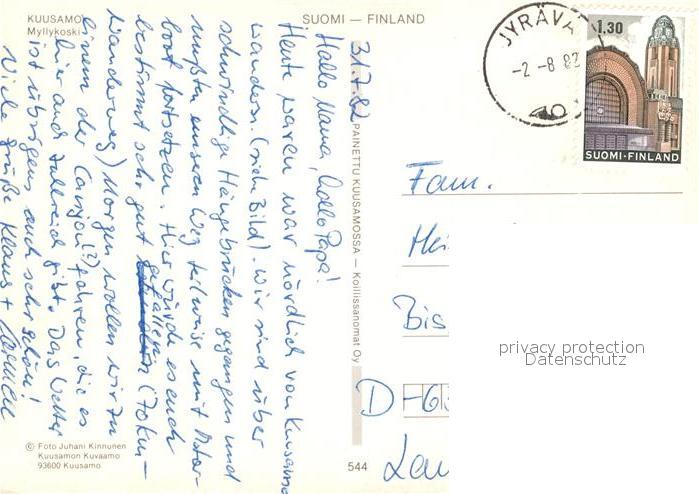 KUUSAMO
Myllykoski
SUOMI — FINLAND
31.7.82
Hallo Mama, hallo Papa!
Heute waren wir nördlich von Kuusamo
wandern. (siehe Bild). Wir sind über
schwindlige Hängebrücken gegangen und
mußten unseren Weg teilweise mit Motor-
boot fortsetzen. Hier würde es euch
bestimmt sehr gut gefallen (70km-
Wanderweg) Morgen wollen wir zu
einem der Canyon(?) fahren, die es
hier auch zahlreich gibt. Das Wetter
ist übrigens auch sehr schön!
Viele Grüße Klaus +
© Foto Juhani Kinnunen
Kuusamon Kuvaamo
93600 Kuusamo
PAINETTU KUUSAMOSSA — Koillissanomat Oy
544
JYRÄVÄ
-2 -8 82
1.30
SUOMI·FINLAND
Fam.
Hei
Bis
D-6
Lau
privacy protection
Datenschutz